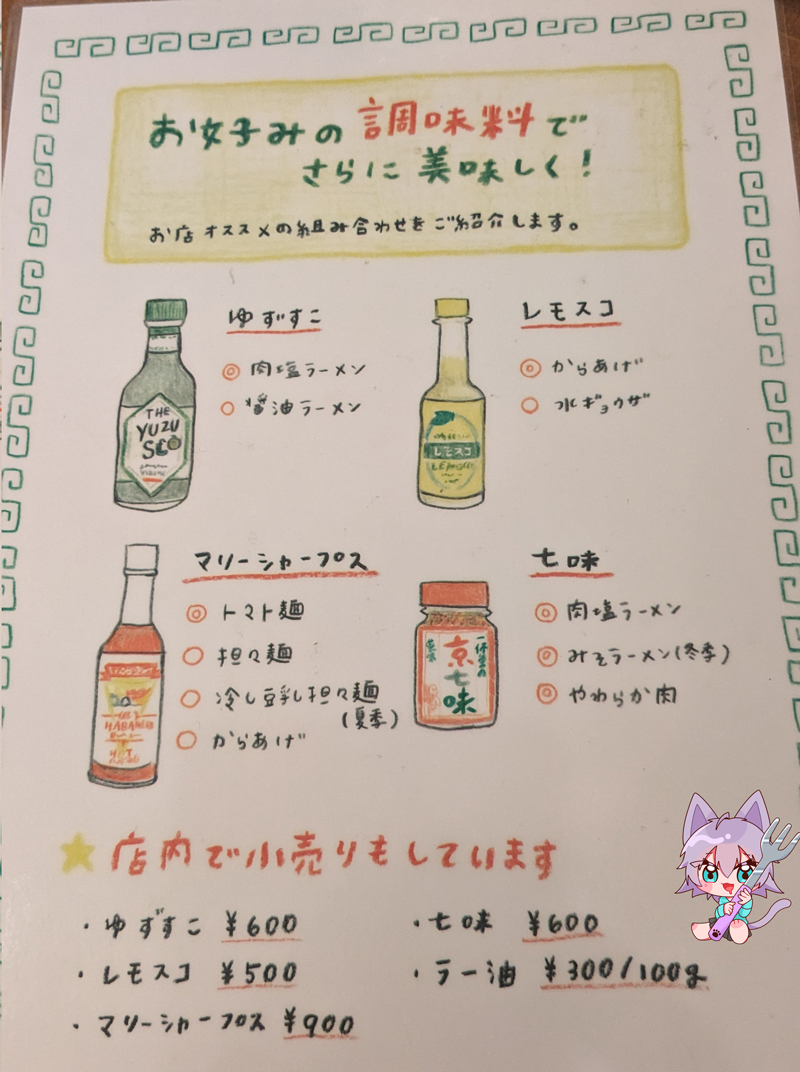 お好みの調味料で
さらに美味しく!
お店オススメの組み合わせをご紹介します。
ゆずすこ
◎ 肉塩ラーメン
○ 醤油ラーメン
THE
YUZU
SCO
レモスコ
◎ からあげ
○ 水ギョウザ
レモスコ
マリーシャープス
◎ トマト麺
○ 担々麺
○ 冷し豆乳担々麺
(夏季)
○ からあげ
HABANERO
HOT
七味
◎ 肉塩ラーメン
◎ みそラーメン(冬季)
◎ やわらか肉
京
七
味
★店内で小売りもしています
・ゆずすこ ¥600
・レモスコ ¥500
・マリーシャープス ¥900
・七味 ¥600
・ラー油 ¥300/100g